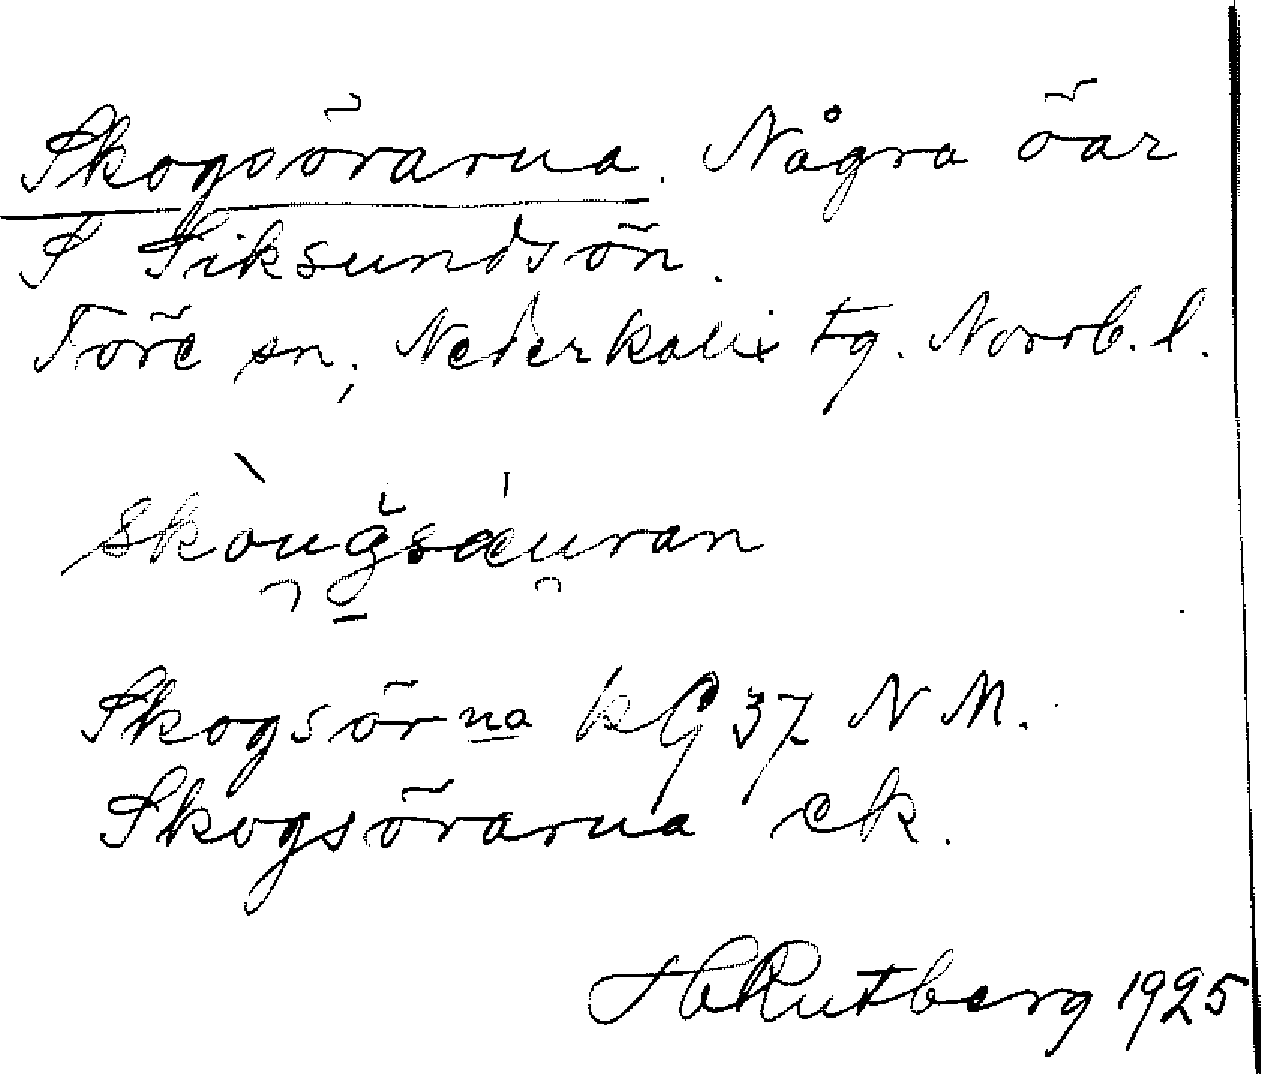 Skogsörarna. Några öar
S Siksundsön.
Töre sn, Nederkalix tg. Norrb. l.
skòuğsǽuran
Skogsörna kG 37 N M.
Skogsörarna ek.
H Rutberg 1925